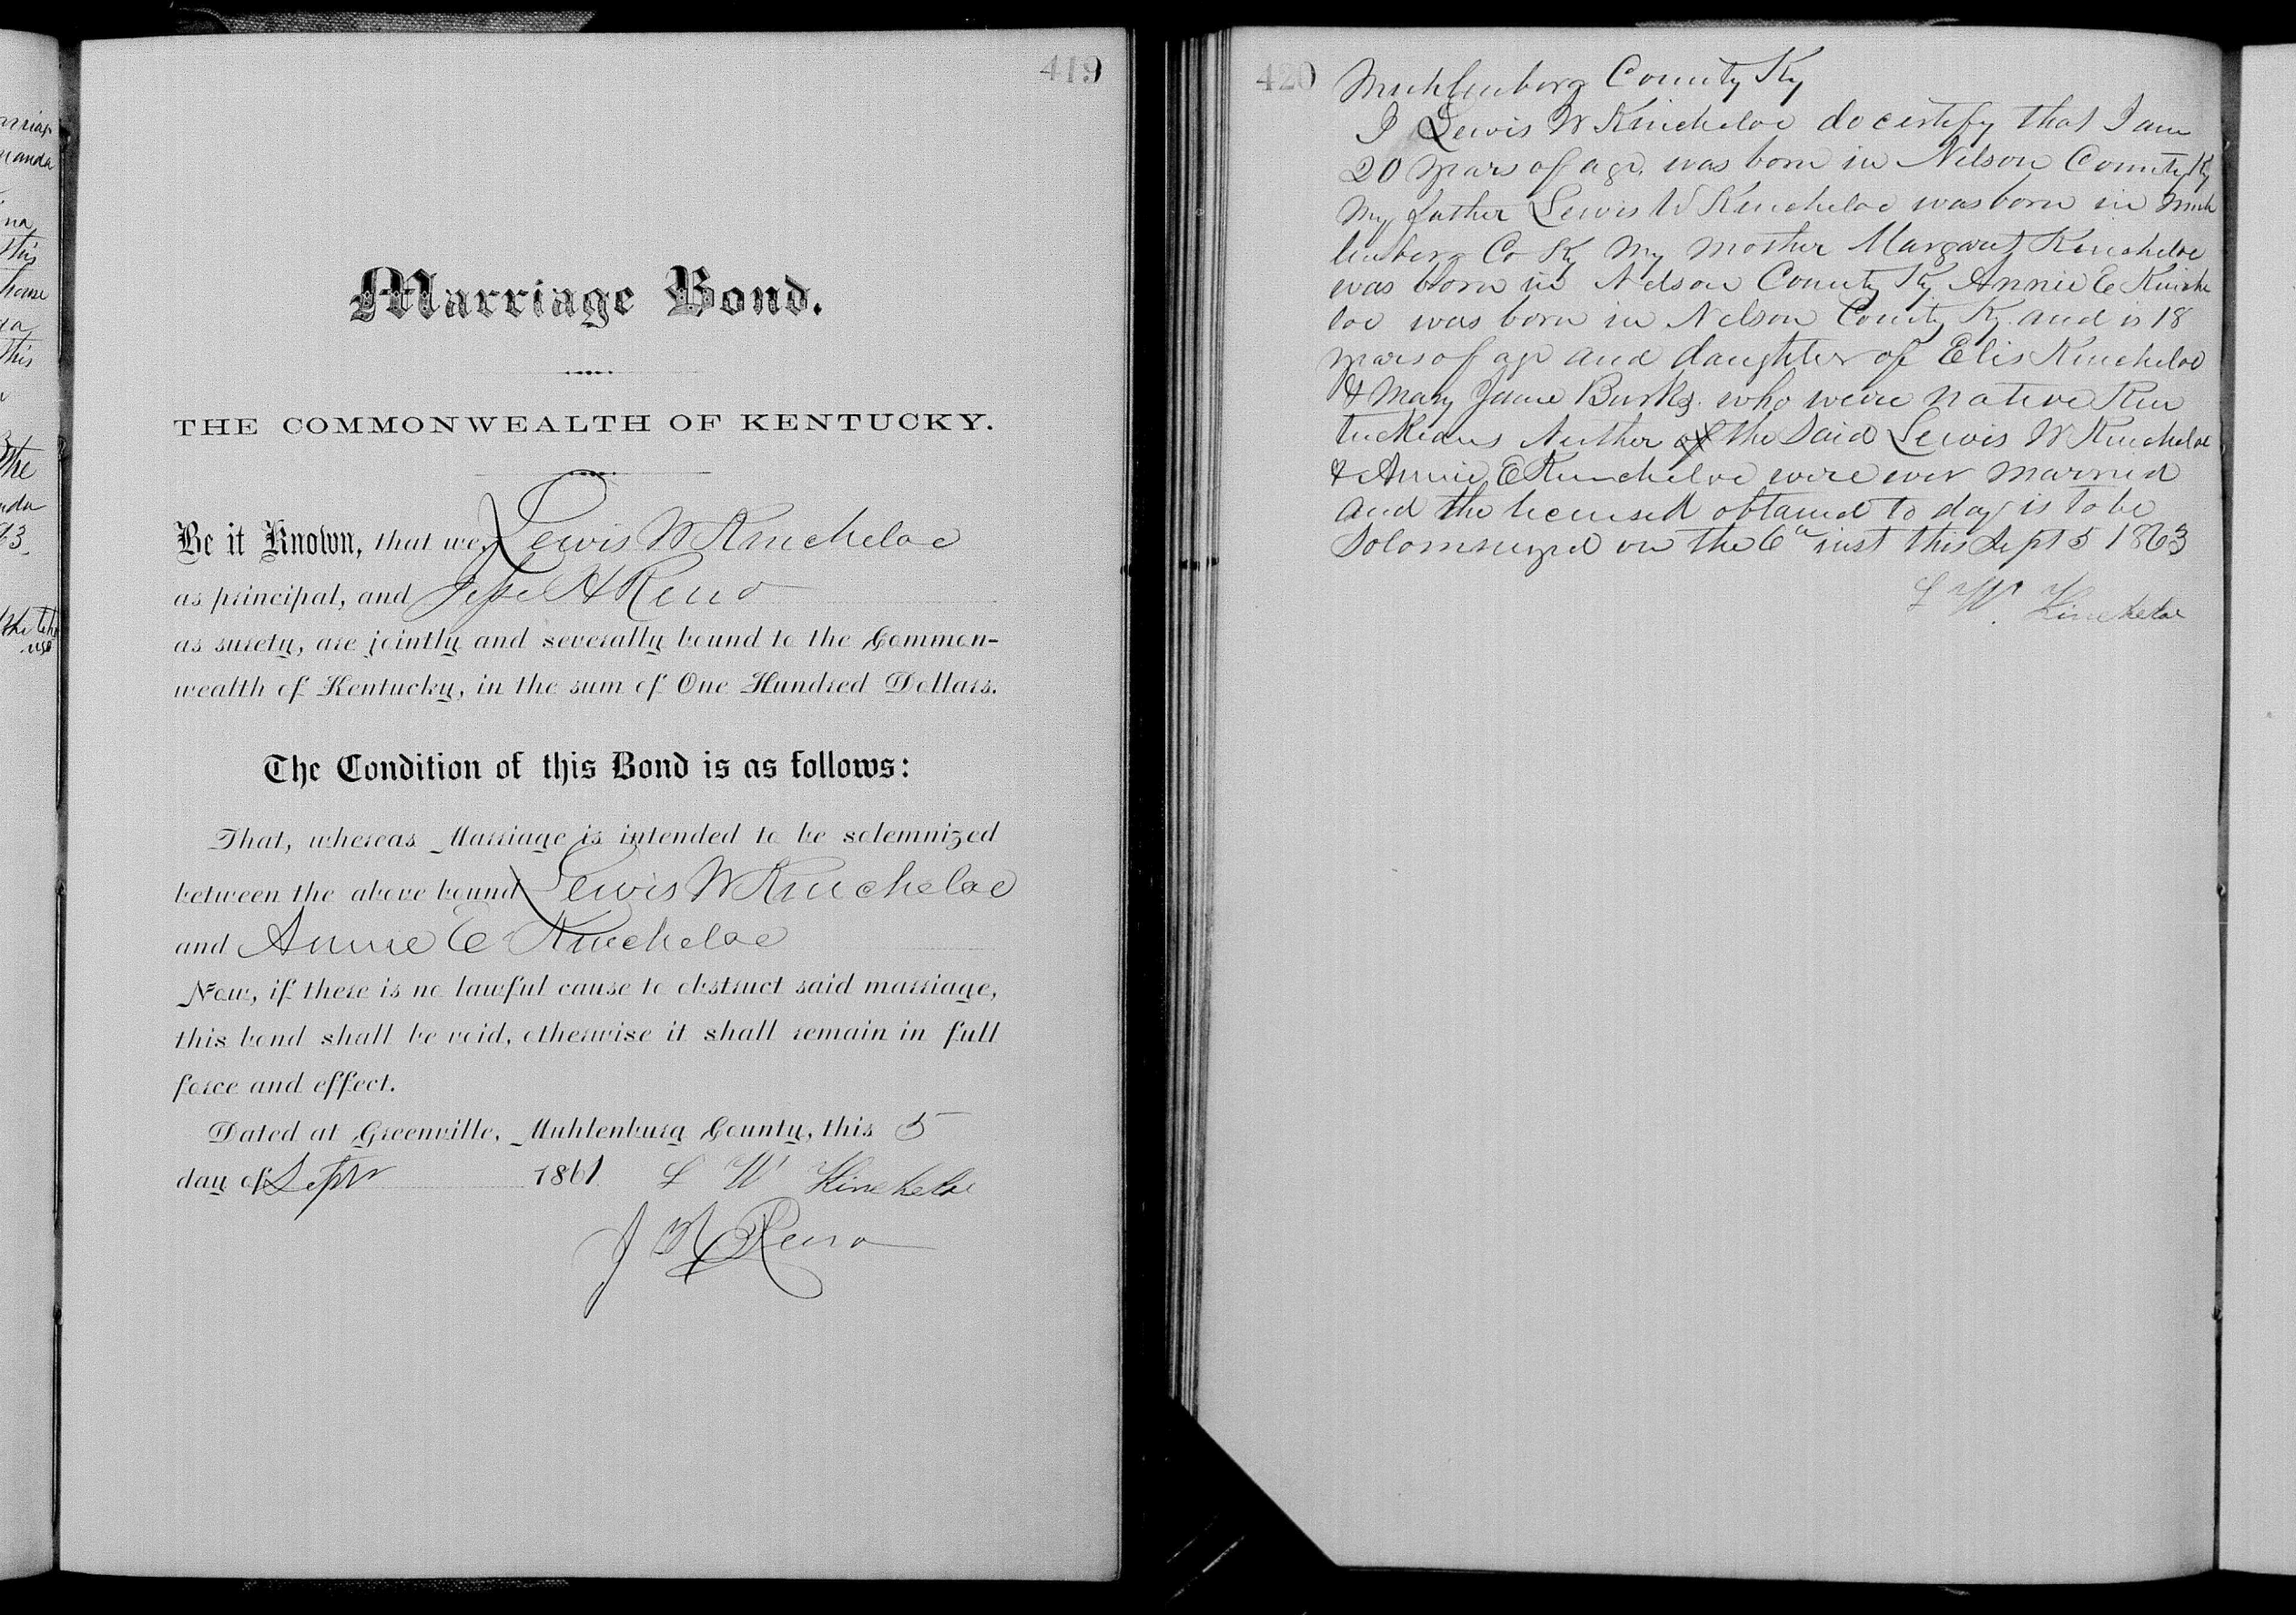 419
Marriage Bond.
THE COMMONWEALTH OF KENTUCKY.
Be it Known, that we, Lewis W Kincheloe
as principal, and Jesse H Reno
as surety, are jointly and severally bound to the Common-
wealth of Kentucky, in the sum of One Hundred Dollars.
The Condition of this Bond is as follows:
That, whereas Marriage is intended to be solemnized
between the above bound Lewis W Kincheloe
and Annie E Kincheloe
Now, if there is no lawful cause to obstruct said marriage,
this bond shall be void, otherwise it shall remain in full
force and effect.
Dated at Greenville, Muhlenburg County, this 5
day of Septr 1861 L W Kincheloe
J H Reno
420
Muhlenberg County Ky
I Lewis W Kincheloe do certify that I am
20 years of age. was born in Nelson County Ky
My father Lewis W Kincheloe was born in Muh
lenberg Co Ky My Mother Margaret Kincheloe
was born in Nelson County Ky Annie E Kinche
loe was born in Nelson County Ky. and is 18
years of age and daughter of Elis Kincheloe
& Mary Jane Burks. who were native Ken
tuckians Neither of the said Lewis W Kincheloe
& Annie E Kincheloe were ever married
and the license obtained to day is to be
Solomnized on the 6th inst this Sept 5 1863
L W. Kincheloe
arriag
manda
na
this
house
this
the
nda